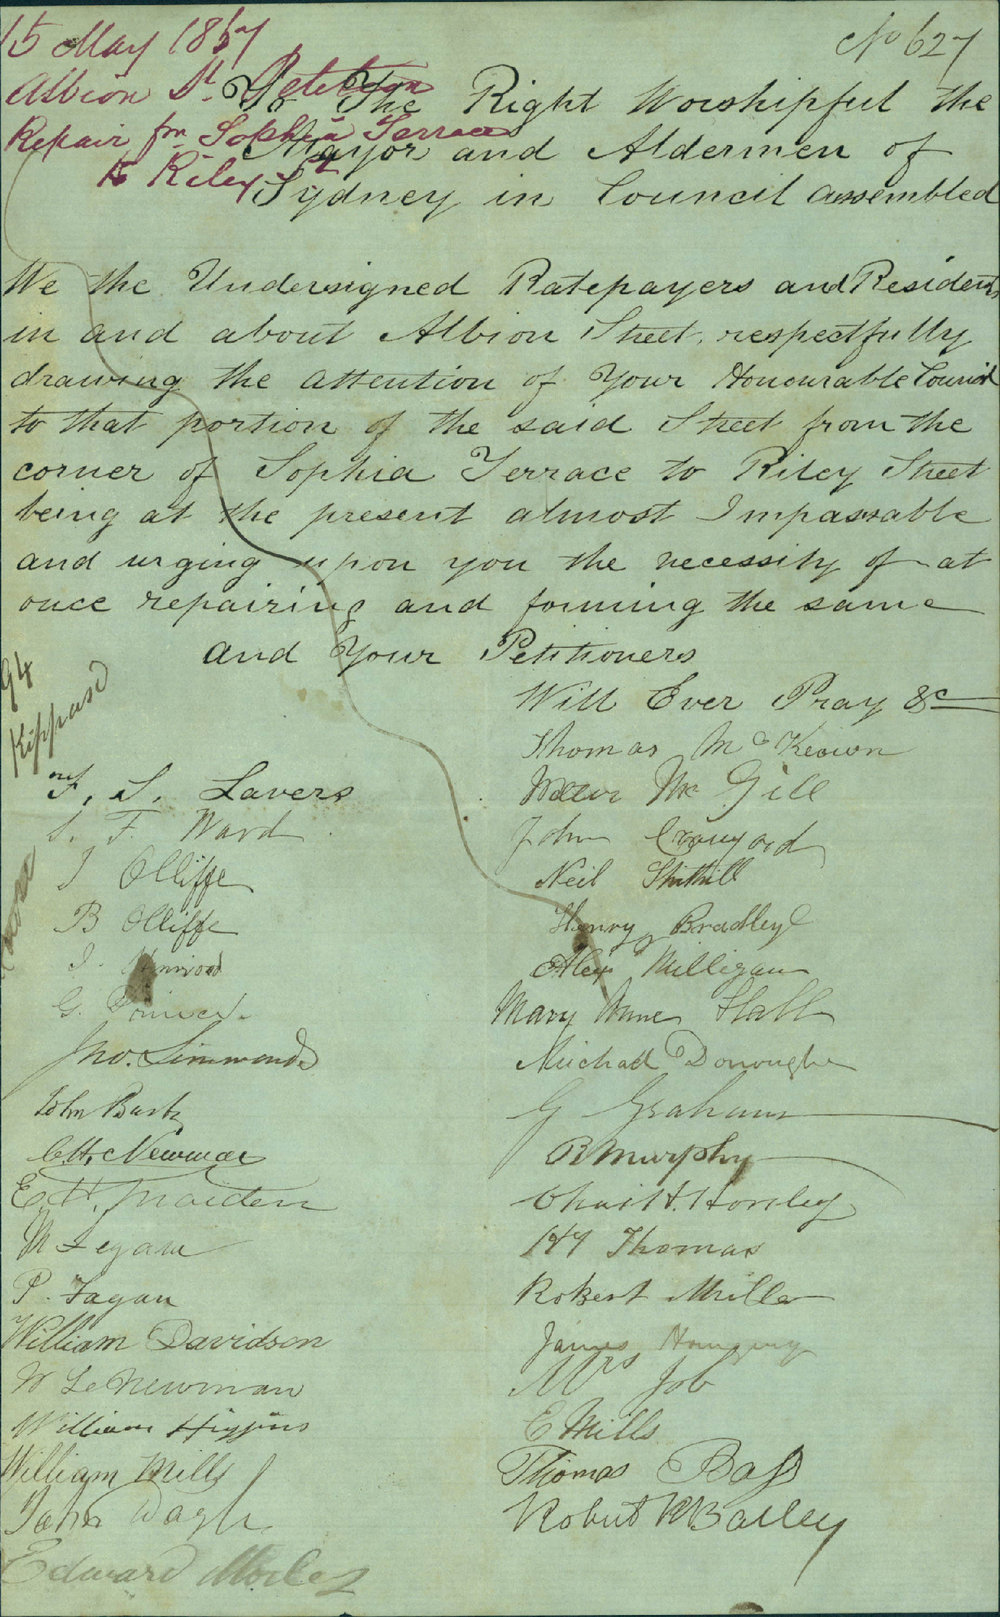 15 May 1867
No 627
Albion St. Petition
Repair fm Sophia Terrace
to Riley St
To The Right Worshipful the
Mayor and Aldermen of
Sydney in Council assembled
We the Undersigned Ratepayers and Residents
in and about Albion Street, respectfully
drawing the attention of Your Honourable Council
to that portion of the said Street from the
corner of Sophia Terrace to Riley Street
being at the present almost Impassable
and urging upon you the necessity of at
once repairing and forming the same
And Your Petitioners
Will Ever Pray &c
94
Thomas McKeown
Mc Gill
John Crawford
Neil
Henry Bradley
Alex Milligan
Mary Anne Hall
Michael Donoughe
G Graham
B Murphy
Chas H. Horsley
Hy Thomas
Robert Miller
James
Mrs Job
E Mills
Thomas Bass
Robert R Bailey
F. S. Lavers
S. F. Ward
J Olliffe
B Olliffe
J.
G.
Jno. Simmonds
John
C.H. Newman
E. H. Maiden
M Fegan
P. Fagan
William Davidson
W Le Newman
William Higgins
William Mills
John
Edward